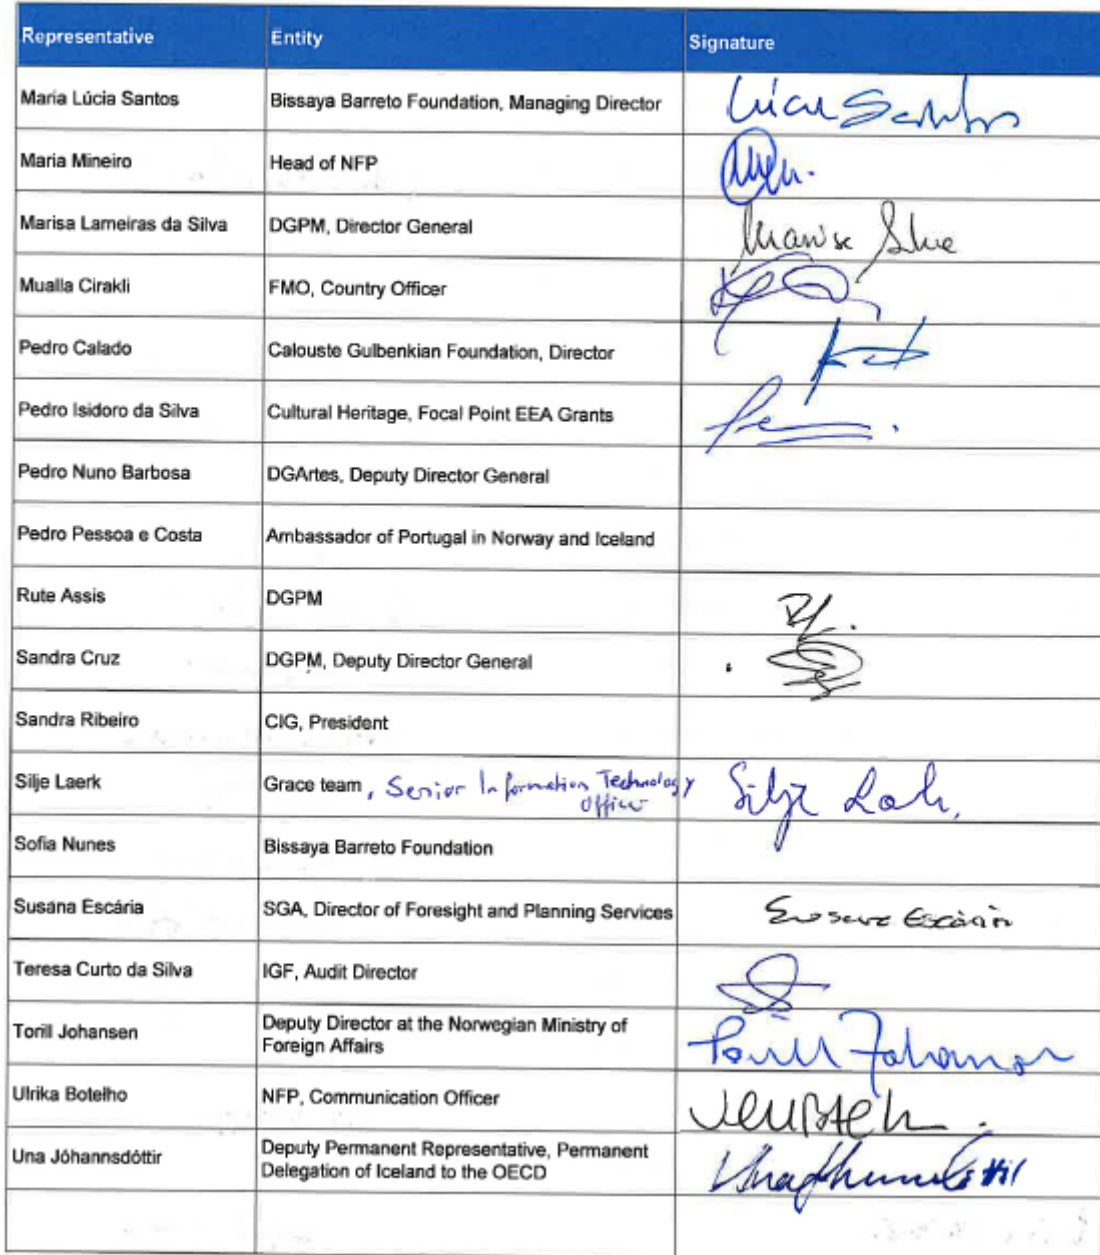 Representative Entity Signature
Maria Lúcia Santos Bissaya Barreto Foundation, Managing Director Lúcia Santos
Maria Mineiro Head of NFP
Marisa Lameiras da Silva DGPM, Director General Marisa Silva
Mualla Cirakli FMO, Country Officer
Pedro Calado Calouste Gulbenkian Foundation, Director
Pedro Isidoro da Silva Cultural Heritage, Focal Point EEA Grants
Pedro Nuno Barbosa DGArtes, Deputy Director General
Pedro Pessoa e Costa Ambassador of Portugal in Norway and Iceland
Rute Assis DGPM
Sandra Cruz DGPM, Deputy Director General
Sandra Ribeiro CIG, President
Silje Laerk Grace team, Senior Information Technology Silje
Officer
Sofia Nunes Bissaya Barreto Foundation
Susana Escária SGA, Director of Foresight and Planning Services Susana Escária
Teresa Curto da Silva IGF, Audit Director
Torill Johansen Deputy Director at the Norwegian Ministry of Torill Johansen
Foreign Affairs
Ulrika Botelho NFP, Communication Officer
Una Jóhannsdóttir Deputy Permanent Representative, Permanent
Delegation of Iceland to the OECD